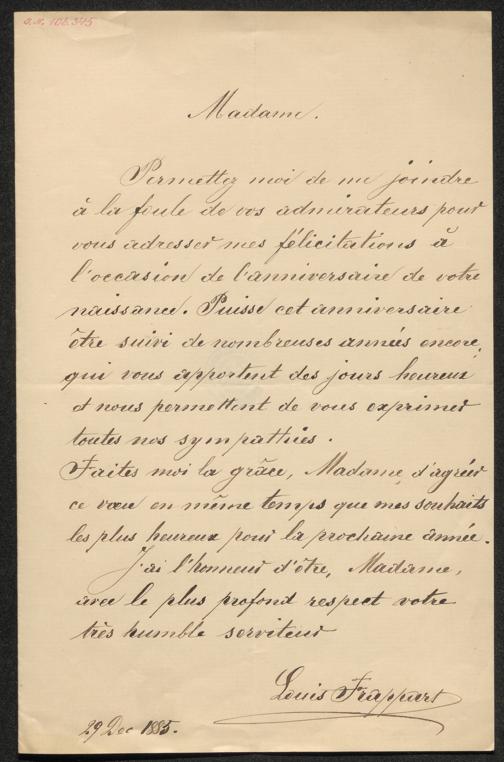 J.N. 108.345
Madame.
Permettez moi de me joindre
à la foule de vos admirateurs pour
vous adresser mes félicitations à
l'occasion de l'anniversaire de votre
naissance. Puisse cet anniversaire
être suivi de nombreuses années encore,
qui vous apportent des jours heureux
et nous permettent de vous exprimer
toutes nos sympathies.
Faites moi la grâce, Madame, d'agréer
ce vœu en même temps que mes souhaits
les plus heureux pour la prochaine année.
J'ai l'honneur d'être, Madame,
avec le plus profond respect votre
très humble serviteur
Louis Frappart
29 Dec 1885.